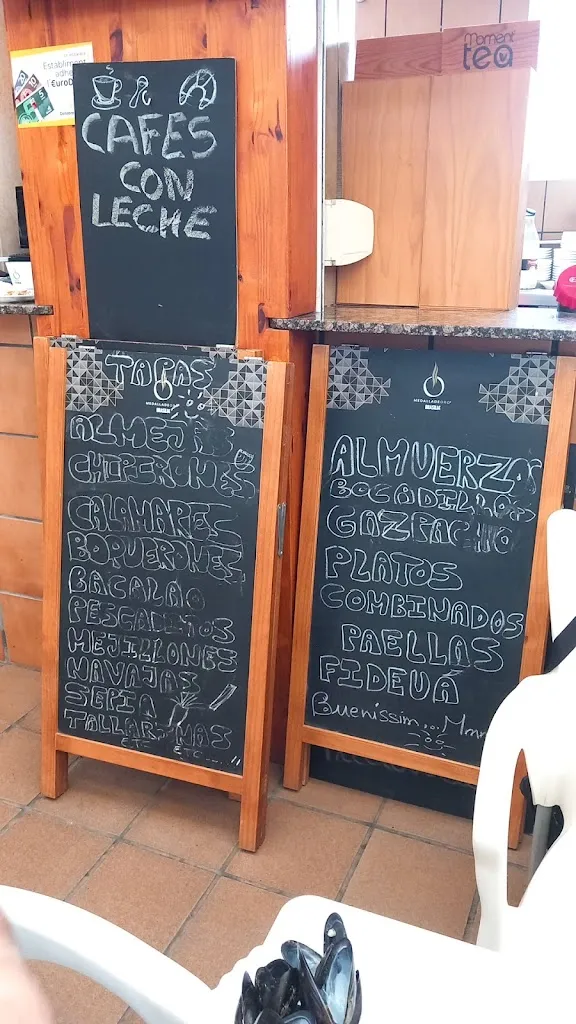 Establiment
€uro
Moment
tea
CAFES
CON
LECHE
TAPAS
MEDALLA DE ORO
BRASILIA
ALMEJAS
CHIPIRONES
CALAMARES
BOQUERONES
BACALAO
PESCADITOS
MEJILLONES
NAVAJAS
SEPIA
TALLARINAS
ETC ETC....
MEDALLA DE ORO
BRASILIA
ALMUERZO
BOCADILLOS
GAZPACHO
PLATOS
COMBINADOS
PAELLAS
FIDEUÁ
Buenissim... Mmm